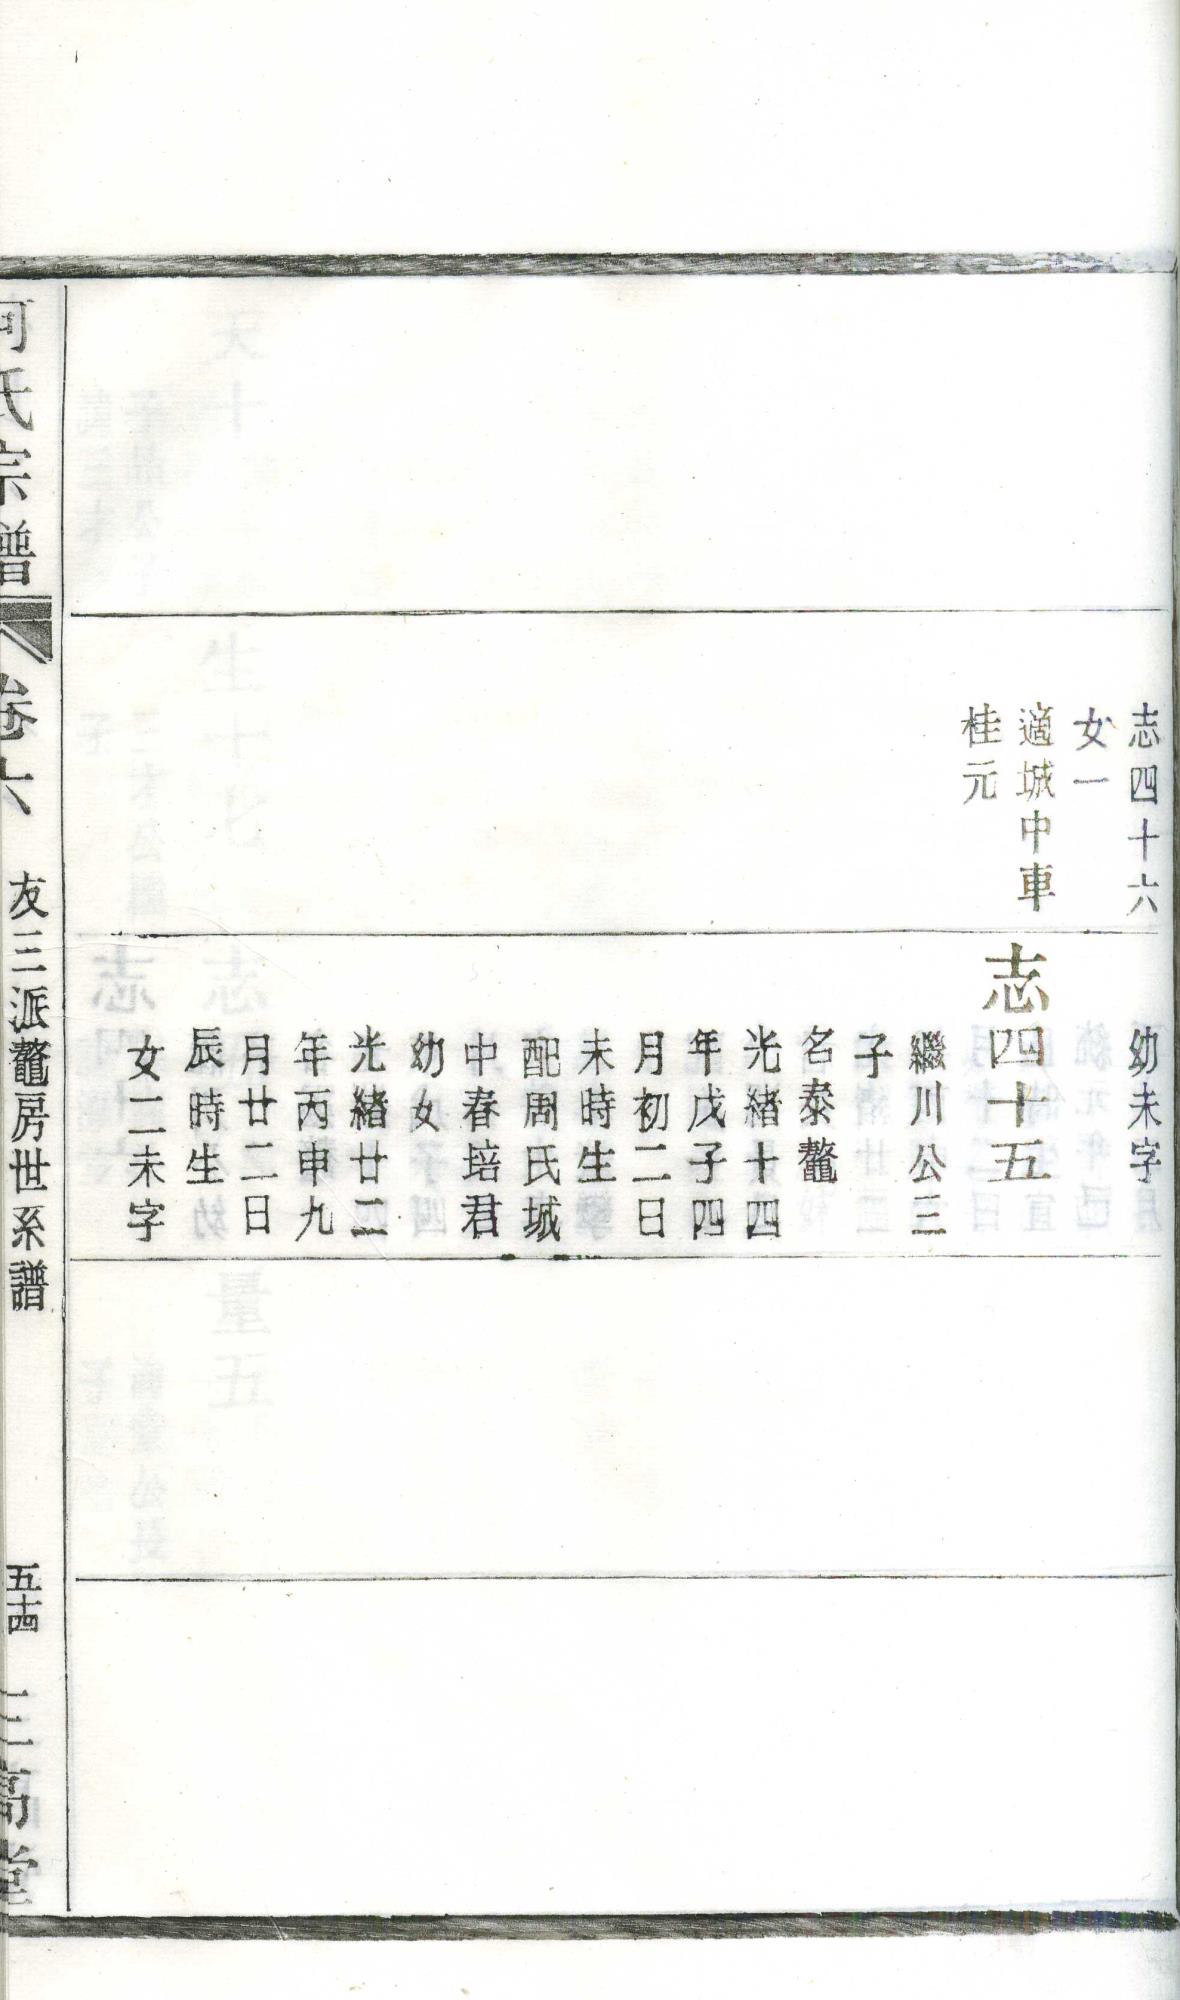 志四十六
女一
適城中車
桂元
幼未字
志四十五
繼川公三
子
名泰鼇
光緒十四
年戊子四
月初二日
未時生
配周氏城
中春培君
幼女
光緒廿二
年丙申九
月廿二日
辰時生
女二未字
何氏宗譜
卷六
友三派鼇房世系譜
五十四
三高堂